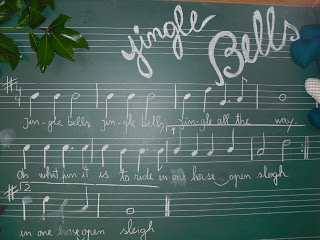 Jingle Bells
4/4
Jin-gle bells jin-gle bells jin-gle all the way.
1
Oh what fun it is to ride in one horse open sleigh
2
in one horse open sleigh